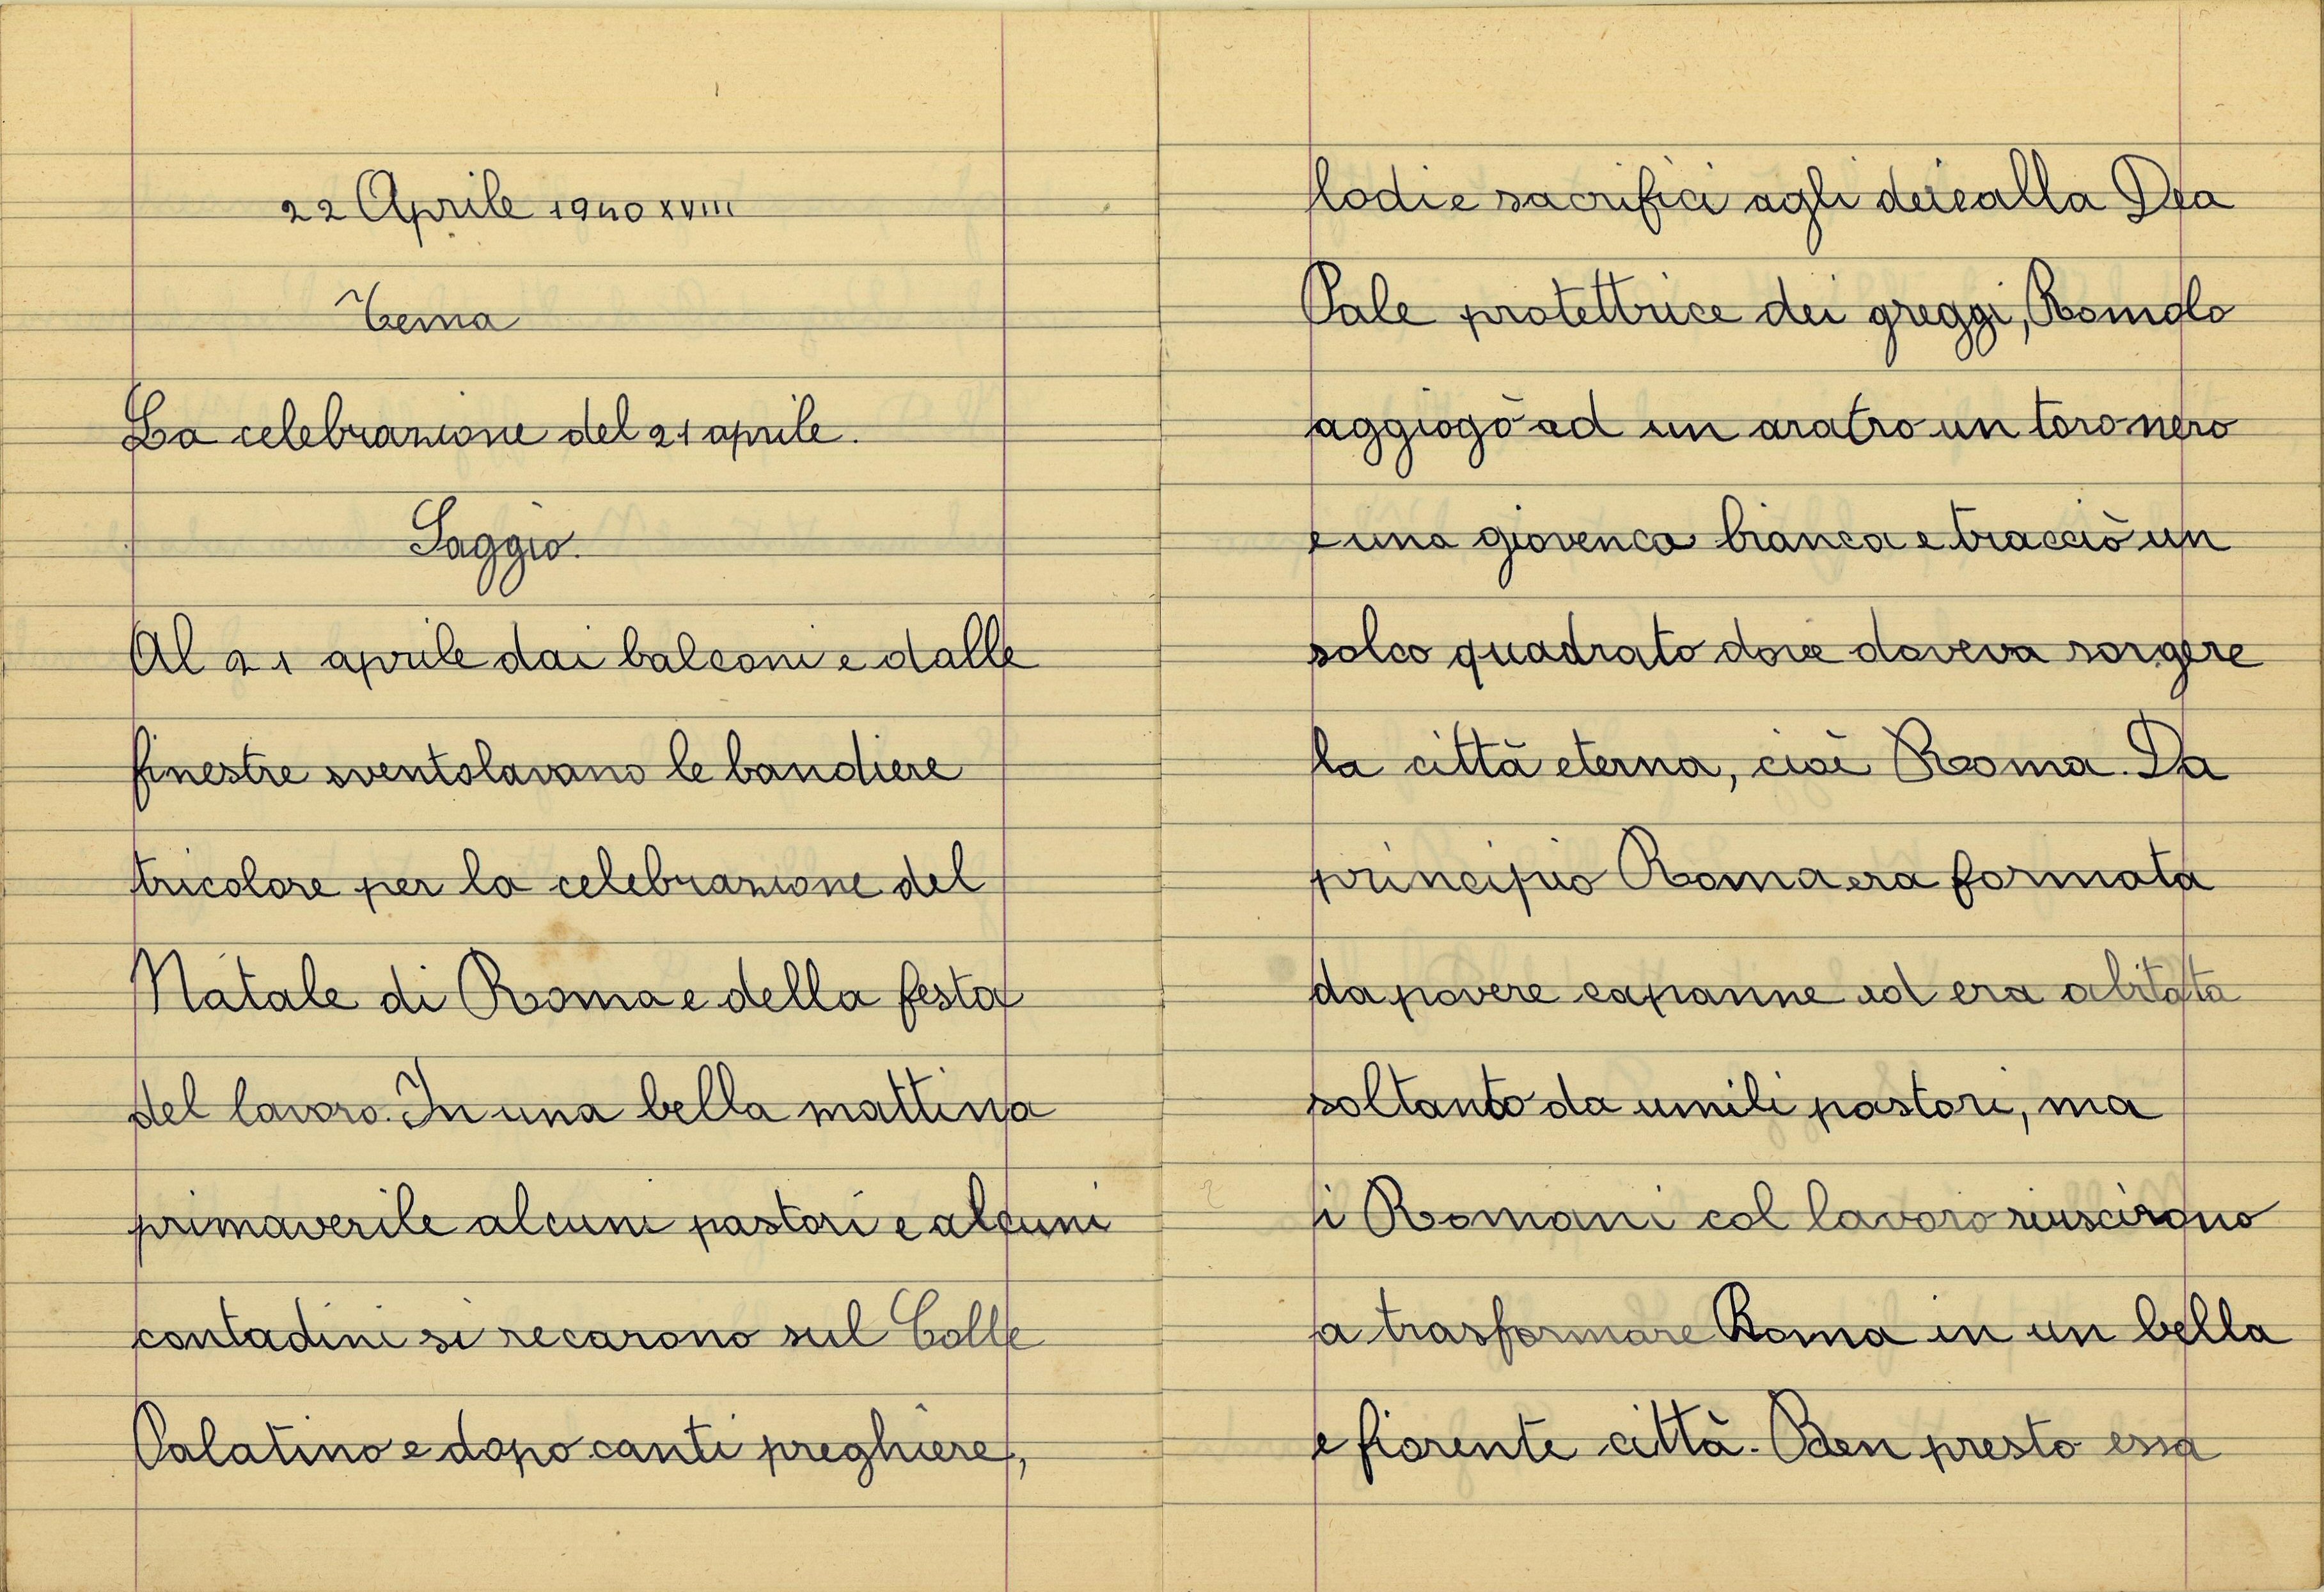 22 Aprile 1940 XVIII
Tema
La celebrazione del 21 aprile.
Saggio.
Al 21 aprile dai balconi e dalle
finestre sventolavano le bandiere
tricolore per la celebrazione del
Natale di Roma e della festa
del lavoro. In una bella mattina
primaverile alcuni pastori e alcuni
contadini si recarono sul Colle
Palatino e dopo canti preghiere,
lodi e sacrifici agli dei e alla Dea
Pale protettrice dei greggi, Romolo
aggiogò ad un aratro un toro nero
e una giovenca bianca e tracciò un
solco quadrato dove doveva sorgere
la città eterna, cioè Roma. Da
principio Roma era formata
da povere capanne ed era abitata
soltanto da umili pastori, ma
i Romani col lavoro riuscirono
a trasformare Roma in un bella
e fiorente città. Ben presto essa